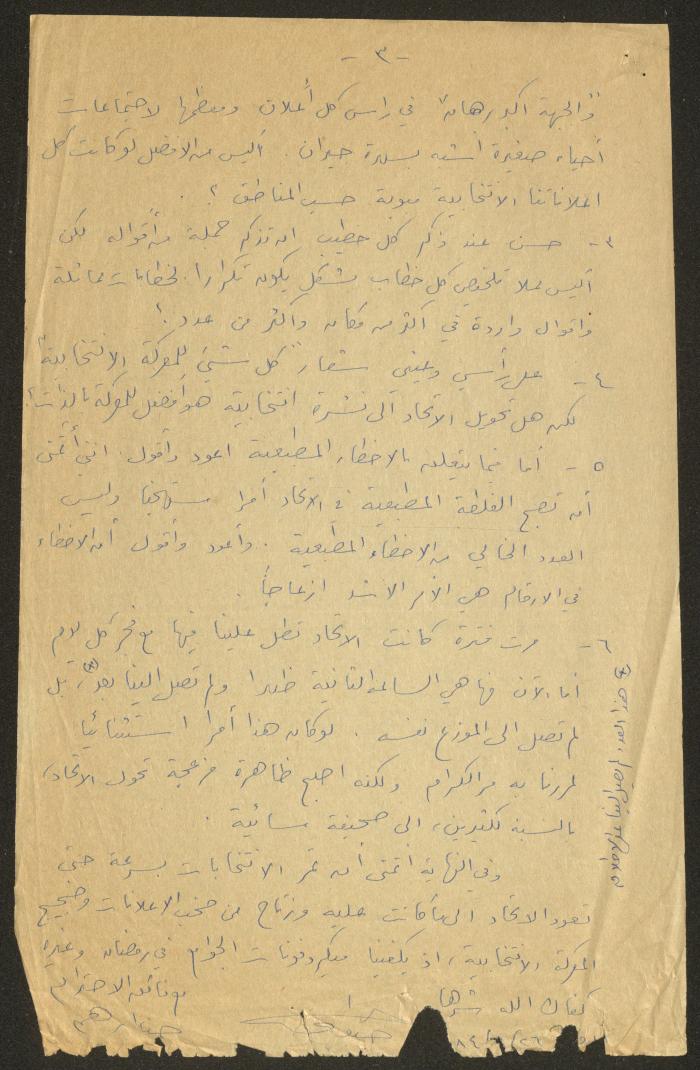 - ٣ -
"والجبهة اكبر رهان" في راس كل أعلان ومعظمها لاجتماعات
أحياء صغيرة اشبه بسهرة جيران. أليس من الافضل لو كانت كل
اعلاناتنا الانتخابية مبوبة حسب المناطق ؟
٣- حسن عند ذكر كل خطيب ان تذكر جملة من أقواله لكن
أليس مملا تلخيص كل خطاب بشكل يكون تكرارا لخطابات مماثلة
واقوال واردة في اكثر من مكان واكثر من عدد ؟!
٤- على رأسي وعيني شعار "كل شيئ للمعركة الانتخابية"
لكن هل تحويل الاتحاد الى نشرة انتخابية هو أفضل للمعركة بالذات؟!
٥- أما فيما يتعلق بالاخطاء المطبعية اعود وأقول انني أتمنى
أن تصبح الغلطة المطبعية في الاتحاد أمرا مستهجنا وليس
العدد الخالي من الاخطاء المطبعية. وأعود وأقول أن الاخطاء
في الارقام هي الأمر الاشد ازعاجاً.
٦- مرت فترة كانت الاتحاد تطل علينا فيها مع فجر كل يوم
أما الآن فها هي الساعة الثانية ظهرا ولم تصل الينا بعد(*)، بل
لم تصل الى الموزع نفسه. لو كان هذا أمرا استثنائيا
لمررنا به مر الكرام ولكنه اصبح ظاهرة مزعجة تحول الاتحاد،
بالنسبة لكثيرين، الى صحيفة مسائية.
وفي النهاية اتمنى أن تمر الانتخابات بسرعة حتى
تعود الاتحاد الى ما كانت عليه ونرتاح من صخب الاعلانات وضجيج
المعركة الانتخابية، اذ يكفينا ميكروفونات الجوامع في رمضان وغيره
كفاك الله شرها
مع فائق الاحترام